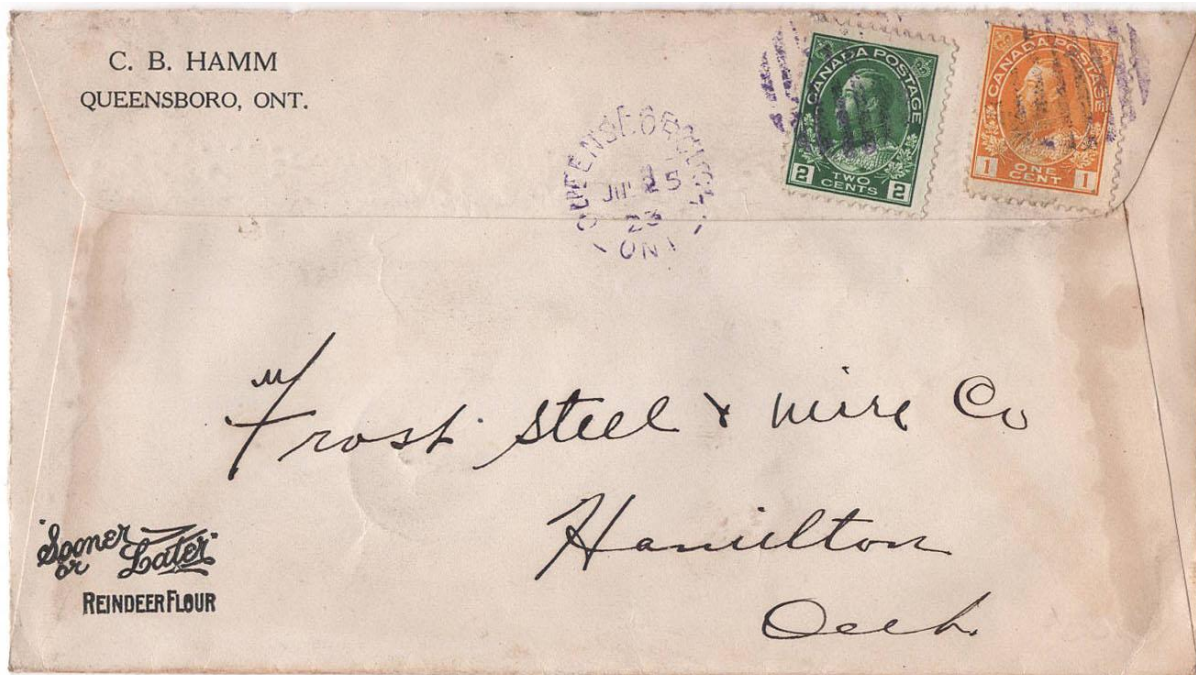 C. B. HAMM
QUEENSBORO, ONT.
CANADA POSTAGE
2 TWO CENTS 2
CANADA POSTAGE
1 ONE CENT 1
25
23
ONT
Frost Steel & Wire Co
Hamilton
"Sooner
or Later"
REINDEER FLOUR